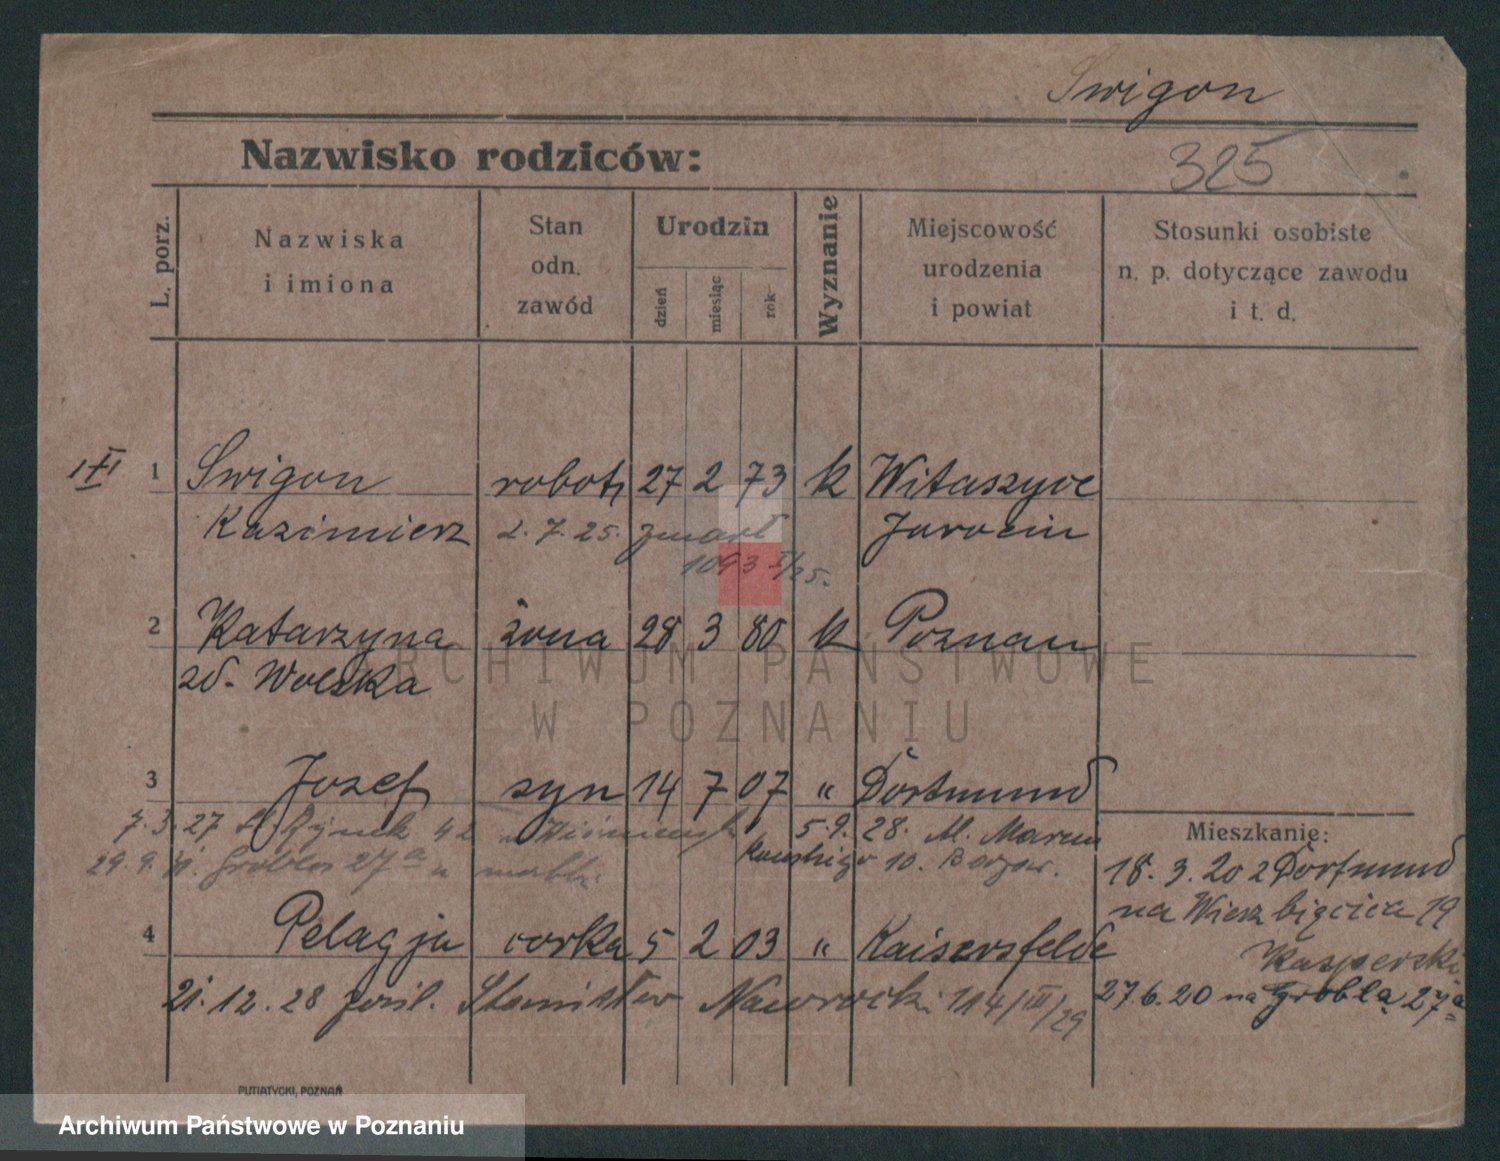 Swigon
Nazwisko rodziców:
325
L. porz.
Nazwiska
i imiona
Stan
odn.
zawód
Urodzin
dzień
miesiąc
rok
Wyznanie
Miejscowość
urodzenia
i powiat
Stosunki osobiste
n. p. dotyczące zawodu
i t. d.
1 Swigon robotn 27 2 73 k Witaszyce
Kazimierz 2. 7. 25. zmarł Jarocin
1093 I/25.
2 Katarzyna żona 28 3 80 k Poznan
zd. Wolska
ARCHIWUM PAŃSTWOWE
W POZNANIU
3 Jozef syn 14 7 07 " Dortmund
7. 3. 27 St. Rynek 42 5. 9. 28. M. Marcin
Mieszkanie:
29. 9. Grobla 27a 10.
18. 3. 20 z Dortmund
na Wierzbięcice 19
4 Pelagja corka 5 2 03 " Kaisersfelde
Kasperski
21. 12. 28 pośl. Stanisław Nawrocki 114/III/29
27. 6. 20 na Grobla 27a
PUTIATYCKI, POZNAŃ
Archiwum Państwowe w Poznaniu